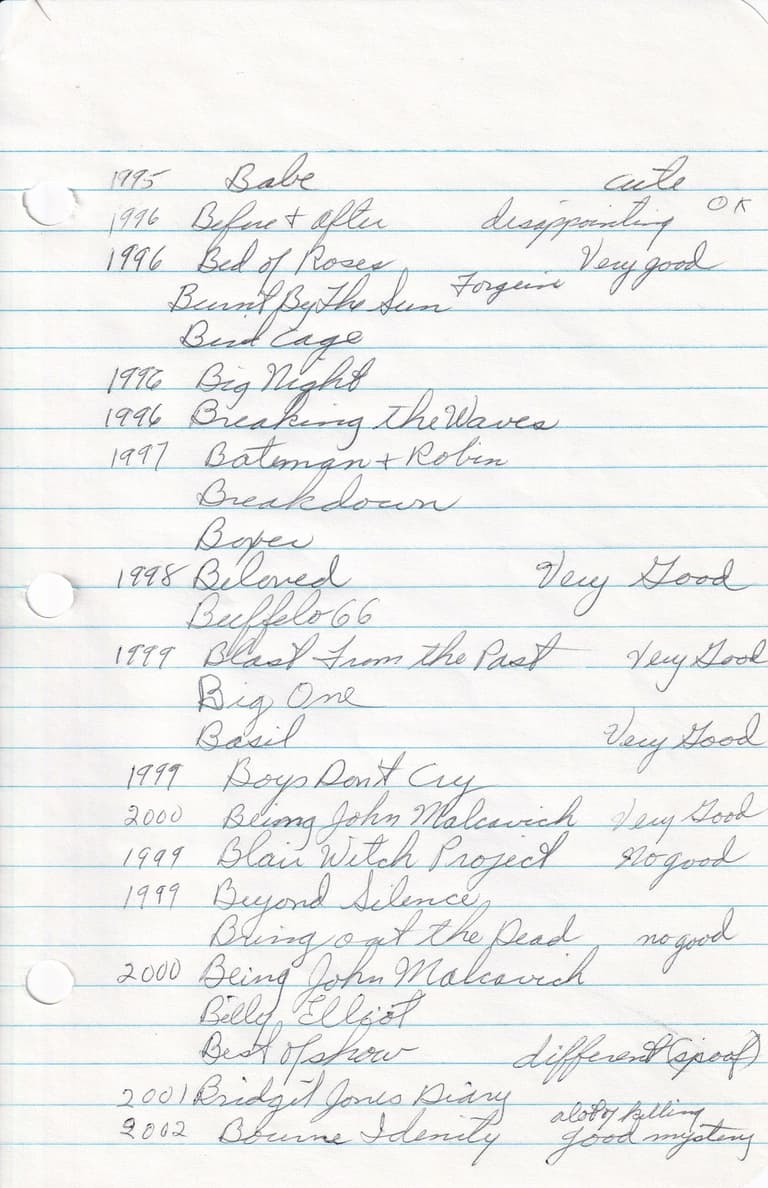 1995 Babe cute
1996 Before + after disappointing OK
1996 Bed of Roses Very good
Burnt By The Sun Forgein
Bird Cage
1996 Big Night
1996 Breaking the Waves
1997 Bateman + Robin
Breakdown
Boxer
1998 Beloved Very Good
Buffelo 66
1999 Blast From the Past Very Good
Big One
Basil Very Good
1999 Boys Don't Cry
2000 Being John Malcavich Very Good
1999 Blair Witch Project No good
1999 Beyond Silence
Bring out the Dead no good
2000 Being John Malcavich
Billy Elliot
Best of show different (spoof)
2001 Bridgit Jones Diary
2002 Bourne Idenity alot of killing good mystery